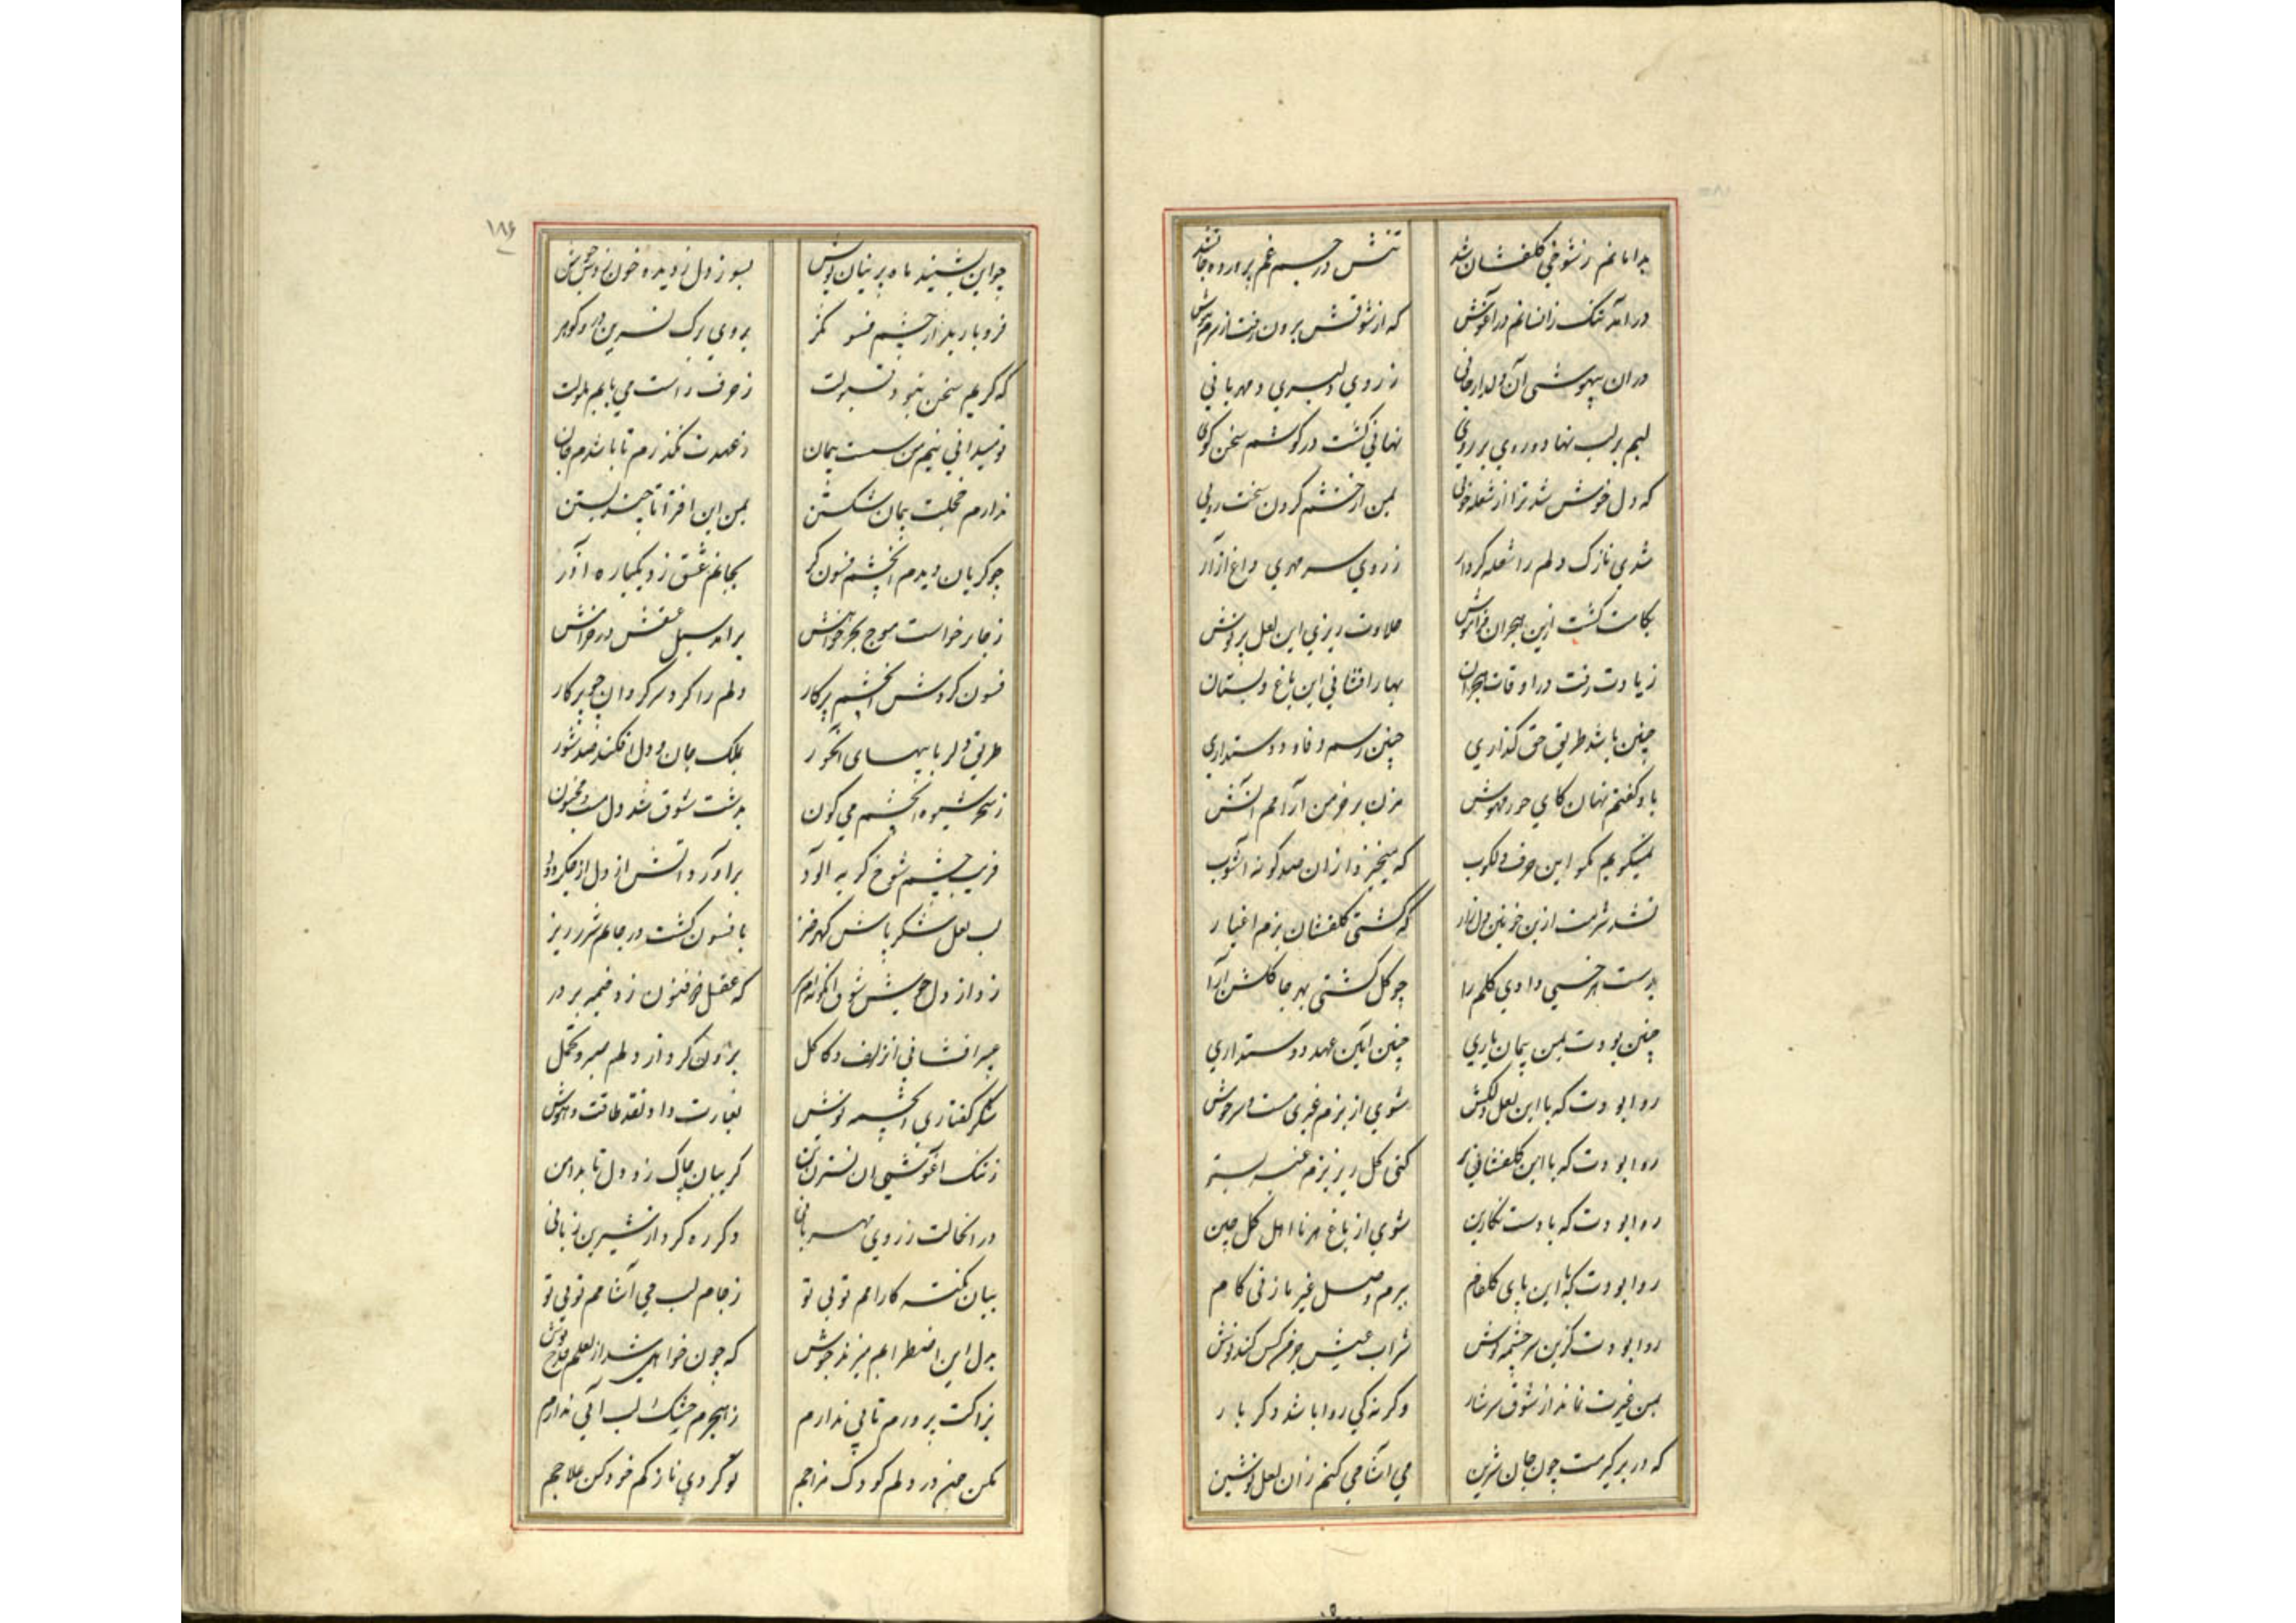 بدامانم ز شوخی گلفشان شد تنش در جسم غم پرورده جان شد
درآمد تنگ زانسانم در آغوش که از شوقش برون رفت از سرم هوش
دران بیهوشی آن دلدار جانی ز روی دلبری و مهربانی
لبم بر لب نهاد و روی بر روی نهانی گشت در گوشم سخن گوی
که دل خوش شد ترا از شعله خوئی بمن از خشم کردن سخت روئی
شدی نازک دلم را شعله کردار ز روی سرد مهری داغ آزار
بکامت گشت ازین هجران فراموش حلاوت ریزی این لعل پرنوش
ز یادت رفت در اوقات هجران بهار افشانی این باغ و بستان
چنین باشد طریق حق گذاری چنین رسم وفا و دوستداری
باو گفتم نهان کای حور مهوش مزن بر خرمن آرامم آتش
نمیگویم مگو این حرف دلکوب که میخیزد ازان صد گونه آشوب
نشد شرمت ازین خونین دل زار که گشتی گلفشان بزم اغیار
بدست هر خسی دادی گلم را چو گل گشتی بهر جا گلشن آرا
چنین بودت بمن پیمان یاری چنین آیین عهد و دوستداری
روا بودت که با این لعل دلکش شوی از بزم غیری مست و سرخوش
روا بودت که با این گلفشانی بر کنی گل ریز بزم غیر بستر
روا بودت که با دست نگارین شوی از باغ هر نا اهل گل چین
روا بودت که با این پای گلفام ببزم وصل غیر ما زنی گام
روا بودت کزین سرچشمه نوش شراب عیش جز هر کس کند نوش
بمن غیرت نماند از شوق سرشار وگرنه کی روا باشد دگر بار
که در بر گیرمت چون جان شیرین می آشامی کنم زان لعل نوشین
۱۸۶
چو این بشنید ماه پرنیان پوش بسوز دل ز دیده خون زدش جوش
فرو بارید از چشم فسونگر بروی برگ نسرین در و گوهر
که گریم سخن نبود قبولت ز حرف راست می یابم ملولت
تو میدانی نیم من سست پیمان ز عهدت نگذرم تا باشدم جان
ندارم خجلت پیمان شکستن بمن این افترا تا چند بستن
چو گریان دیدم آن چشم فسون گر بجانم عشق زد یکباره آذر
ز جا برخاست موج بحر خونش برآمد سیل عشقش در خروش
فسون گردش آن چشم پرکار دلم را کرد سرگردان چو پرگار
طریق دلربایهای آن حور بملک جان و دل افکند صد شور
ز سحر شیوه آن چشم می گون بدشت شوق شد دل مست و مجنون
فریب چشم شوخ گریه آلود برآورد آتش از دل از جگر دود
لب لعل شکر پاش گهر خیز بافسون گشت در جانم شرر ریز
زد از دل جوش شوق که عقل ذوفنون زد خیمه بر در
عبیر افشانی آن زلف و کاکل برون کرد از دلم صبر و تحمل
شکر گفتاری آن چشمه نوش بغارت داد نقد طاقت و هوش
ز تنگ آغوشی آن نسترن تن گریبان چاک زد دل تا بدامن
در آنحالت ز روی مهربانی دگر ره کرد از شیرین زبانی
بیان نکته کارامم توئی تو ز جام لب می آشامم توئی تو
بدل این اضطرابم میزند جوش که چون خواهی شد از لعلم قدح نوش
نزاکت پرورم تابی ندارم ز هجرم خشک لب آبی ندارم
مکن خون در دلم کودک مزاجم تو کردی نازکم خود کن علاجم